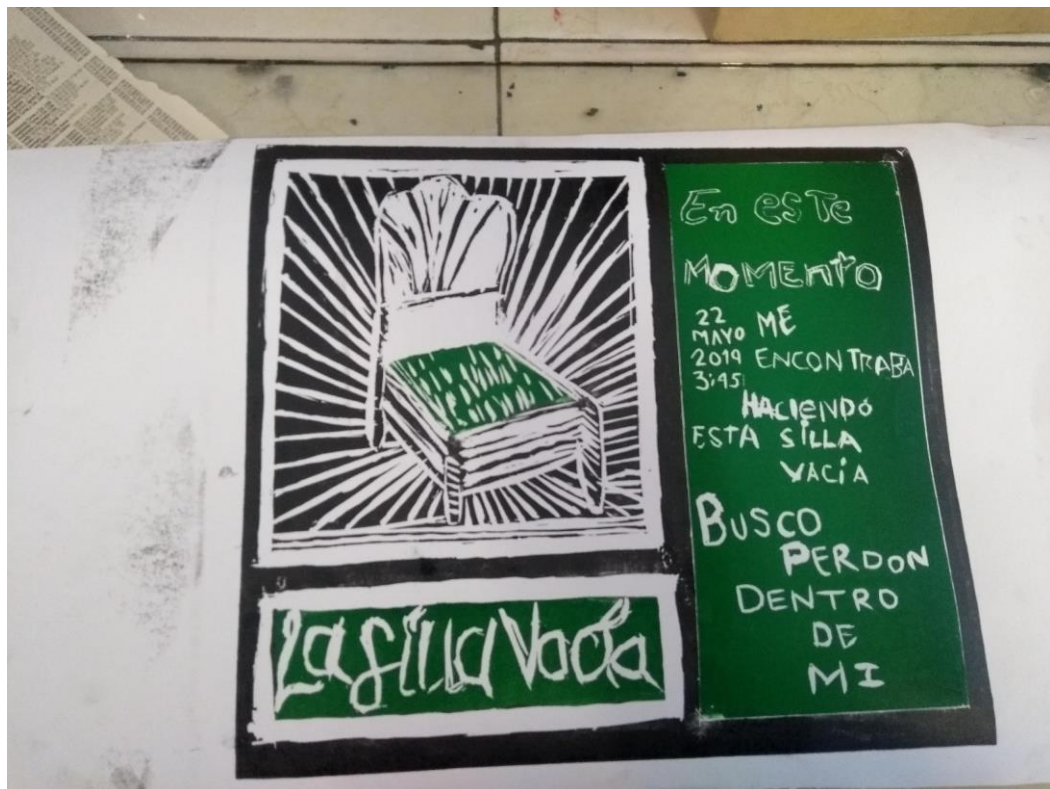 La silla Vacía
En este
MOMENtO
22 MAYO 2019 3:45
ME
ENCONTRABA
HACIENDO
ESTA SILLA
VACÍA
BUSCO
PERDON
DENTRO
DE
MI